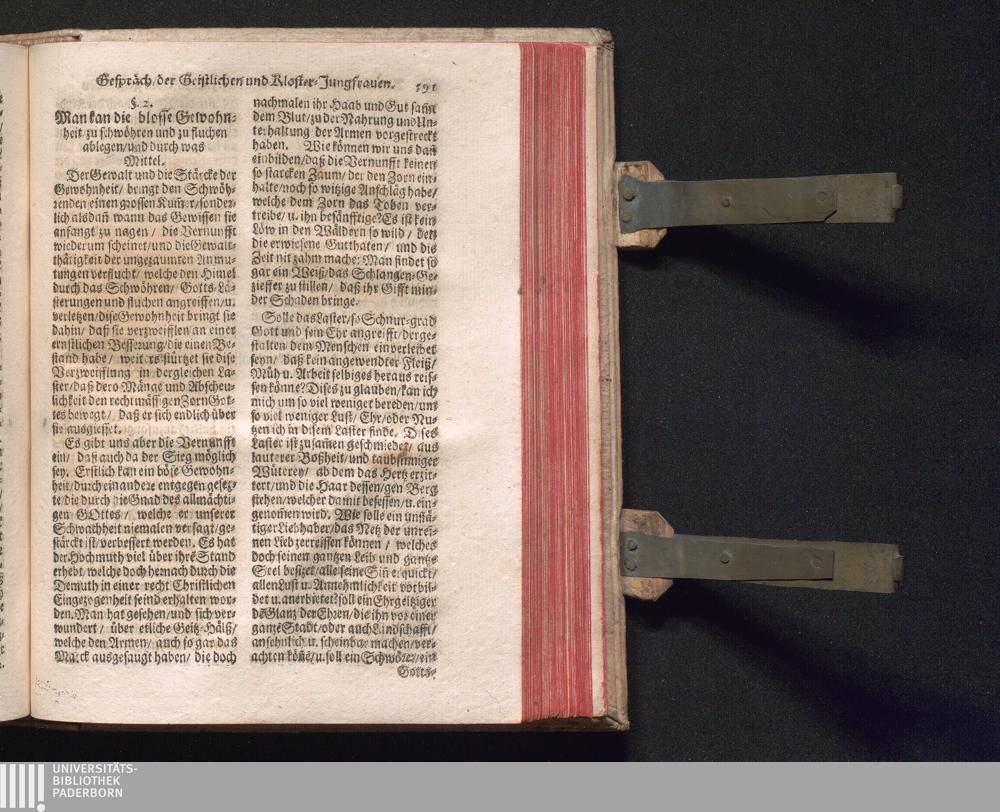 Gespräch/ der Geistlichen und Kloster-Jungfrauen. 591
§. 2.
Man kan die blosse Gewohn-
heit zu schwöhren und zu fluchen
ablegen/ und durch was
Mittel.
Der Gewalt und die Stärcke der
Gewohnheit/ bringt den Schwöh-
renden einen grossen Kum̄er/ sonder-
lich alsdañ wann das Gewissen sie
anfangt zu nagen / die Vernunfft
wiederum scheinet/ und die Gewalt-
thätigkeit der ungezaumten Anmu-
tungen verflucht/ welche den Him̄el
durch das Schwöhren/ Gotts-Lä-
sterungen und fluchen angreiffen/ u.
verletzen/ dise Gewohnheit bringt sie
dahin/ daß sie verzweifflen an einer
ernstlichen Besserung/ die einen Be-
stand habe/ weiters stürtzet sie dise
Verzweifflung in dergleichen La-
ster/ daß dero Mänge und Abscheu-
lichkeit den rechtmässigen Zorn Got-
tes bewegt/ daß er sich endlich über
sie ausgiesset.
Es gibt uns aber die Vernunfft
ein/ daß auch da der Sieg möglich
sey. Erstlich kan ein böse Gewohn-
heit/ durch ein andere entgegen gesez-
te/ die durch die Gnad des allmächti-
gen GOttes / welche er unserer
Schwachheit niemalen versagt/ ge-
stärckt ist/ verbessert werden. Es hat
der Hochmuth viel über ihrē Stand
erhebt/ welche doch hernach durch die
Demuth in einer recht Christlichen
Eingezogenheit seind erhalten wor-
den. Man hat gesehen/ und sich ver-
wundert / über etliche Geitz-Hälß/
welche den Armen/ auch so gar das
Marck ausgesaugt haben/ die doch
nachmalen ihr Haab und Gut sam̄t
dem Blut/ zu der Nahrung und Un-
terhaltung der Armen vorgestreckt
haben. Wie können wir uns dañ
einbilden/ daß die Vernunfft keinen
so starcken Zaum/ der den Zorn ein-
halte/ noch so witzige Anschläg habe/
welche dem Zorn das Toben ver-
treibe/ u. ihn besänfftige? Es ist kein
Löw in den Wäldern so wild / den
die erwiesene Gutthaten/ und die
Zeit nit zahm mache: Man findet so
gar ein Weiß/ das Schlangen-Ge-
zieffer zu stillen/ daß ihr Gifft min-
der Schaden bringe.
Solle das Laster/ so Schnur-grad
Gott und sein Ehr angreifft/ derge-
stalten dem Menschen einverleibet
seyn/ daß kein angewendter Fleiß/
Müh u. Arbeit selbiges heraus reis-
sen könne? Dises zu glauben/ kan ich
mich um so viel weniger bereden/ um
so viel weniger Lust/ Ehr/ oder Nu-
tzen ich in disem Laster finde. Dises
Laster ist zusam̄en geschmiedet/ aus
lauterer Boßheit/ und taubsinniger
Wüterey/ ab dem das Hertz erzit-
tert/ und die Haar dessen/ gen Berg
stehen/ welcher damit besessen/ u. ein-
genom̄en wird. Wie solle ein unflä-
tiger Liebhaber/ das Netz der unrei-
nen Lieb zerreissen können / welches
doch seinen gantzen Leib und gantze
Seel besitzet/ alle seine Siñ erquickt/
allen Lust u. Annehmlichkeit vorbil-
det u. anerbietet? soll ein Ehrgeitziger
dē Glanz der Ehren/ die ihn vor einer
ganzē Stadt/ oder auch Landschafft/
ansehnlich u. scheinbar machen/ ver-
achten köñē/ u. soll ein Schwörer/ ein
Gotts-
UNIVERSITÄTS-
BIBLIOTHEK
PADERBORN